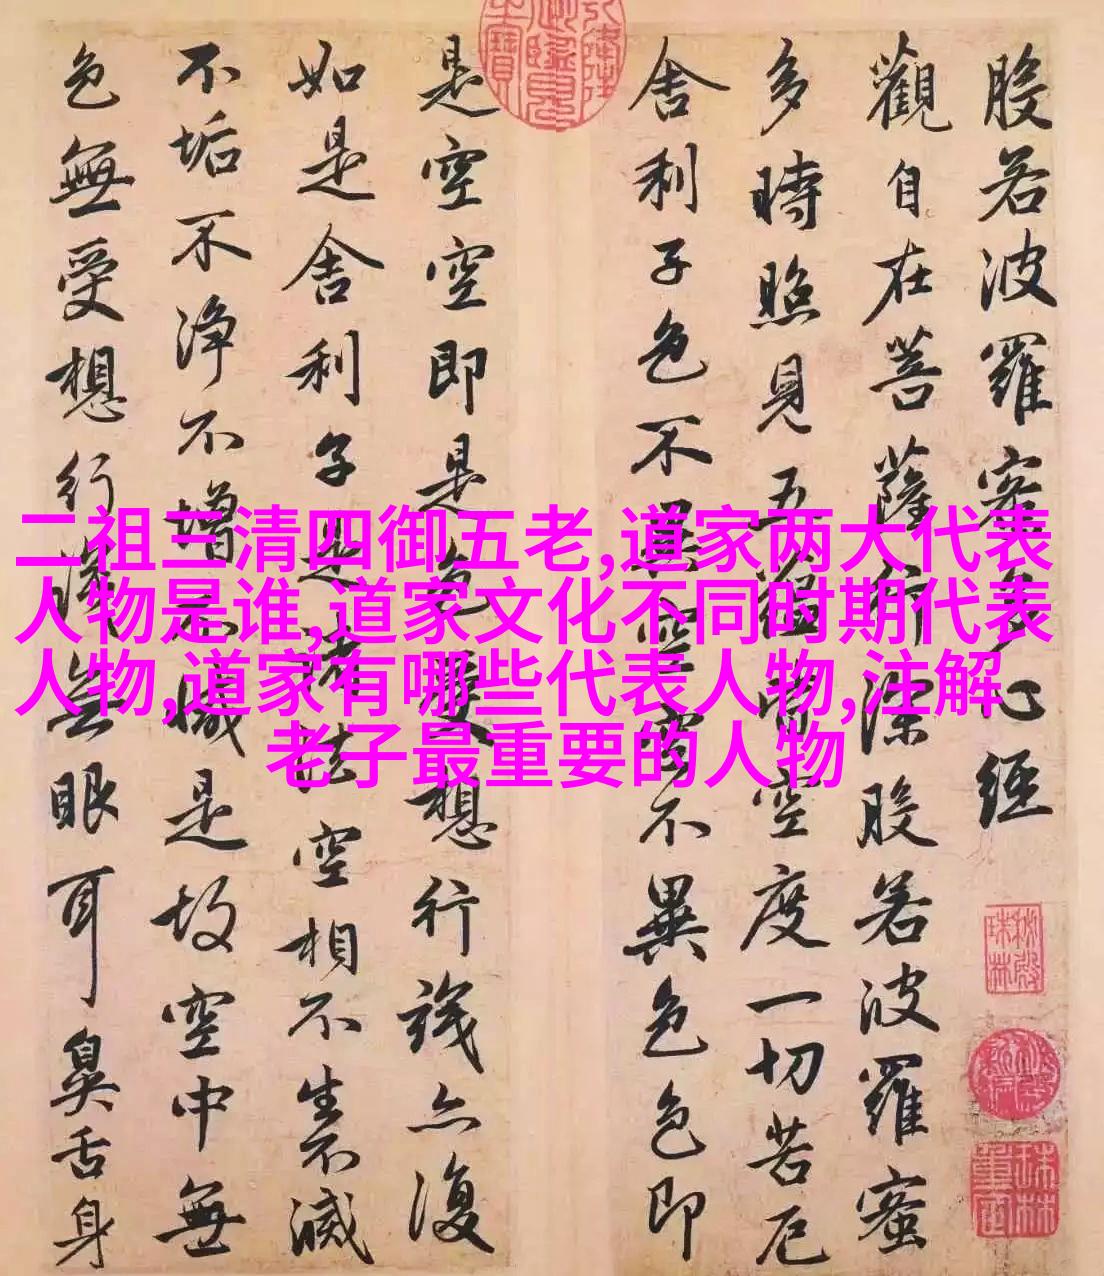 般若波羅蜜多心經
觀自在菩薩行深般若波羅蜜
多時照見五蘊皆空度一切苦厄
舍利子色不異空空不異色色即
是空空即是色受想行識亦復
如是舍利子是諸法空相不生不滅
不垢不淨不增不減是故空中無
色無受想行識無眼耳鼻舌身
二祖三清四御五老,道家两大代表
人物是谁,道家文化不同时期代表
人物,道家有哪些代表人物,注解
老子最重要的人物